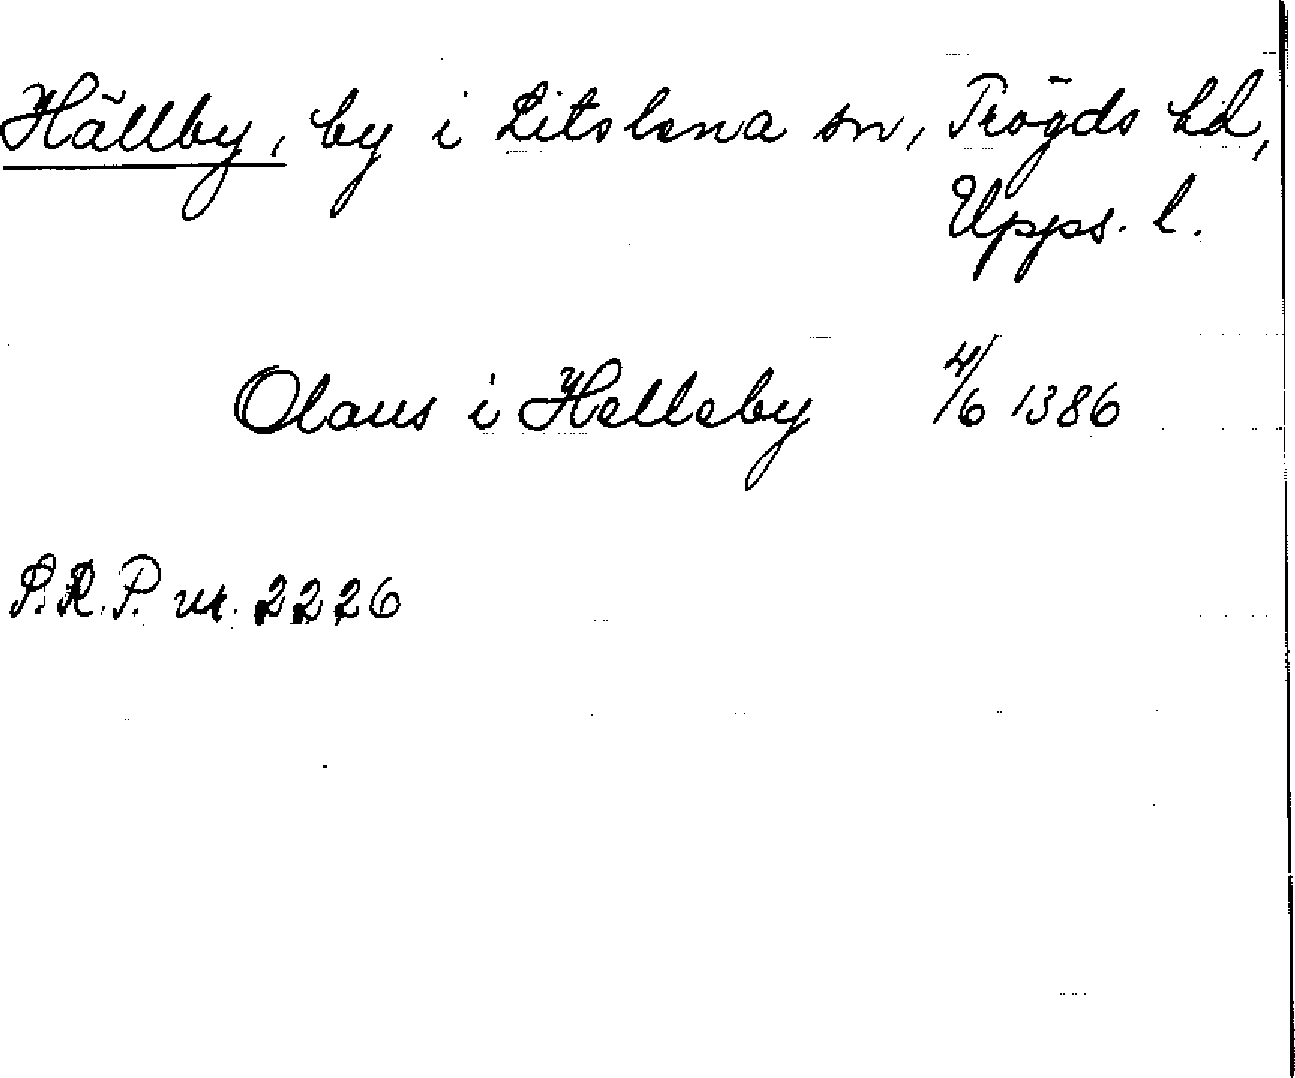 Hällby, by i Litslena sn, Trögds hd,
Upps. l.
Olaus i Helleby 4/6 1386
P.R.P. nr. 2226